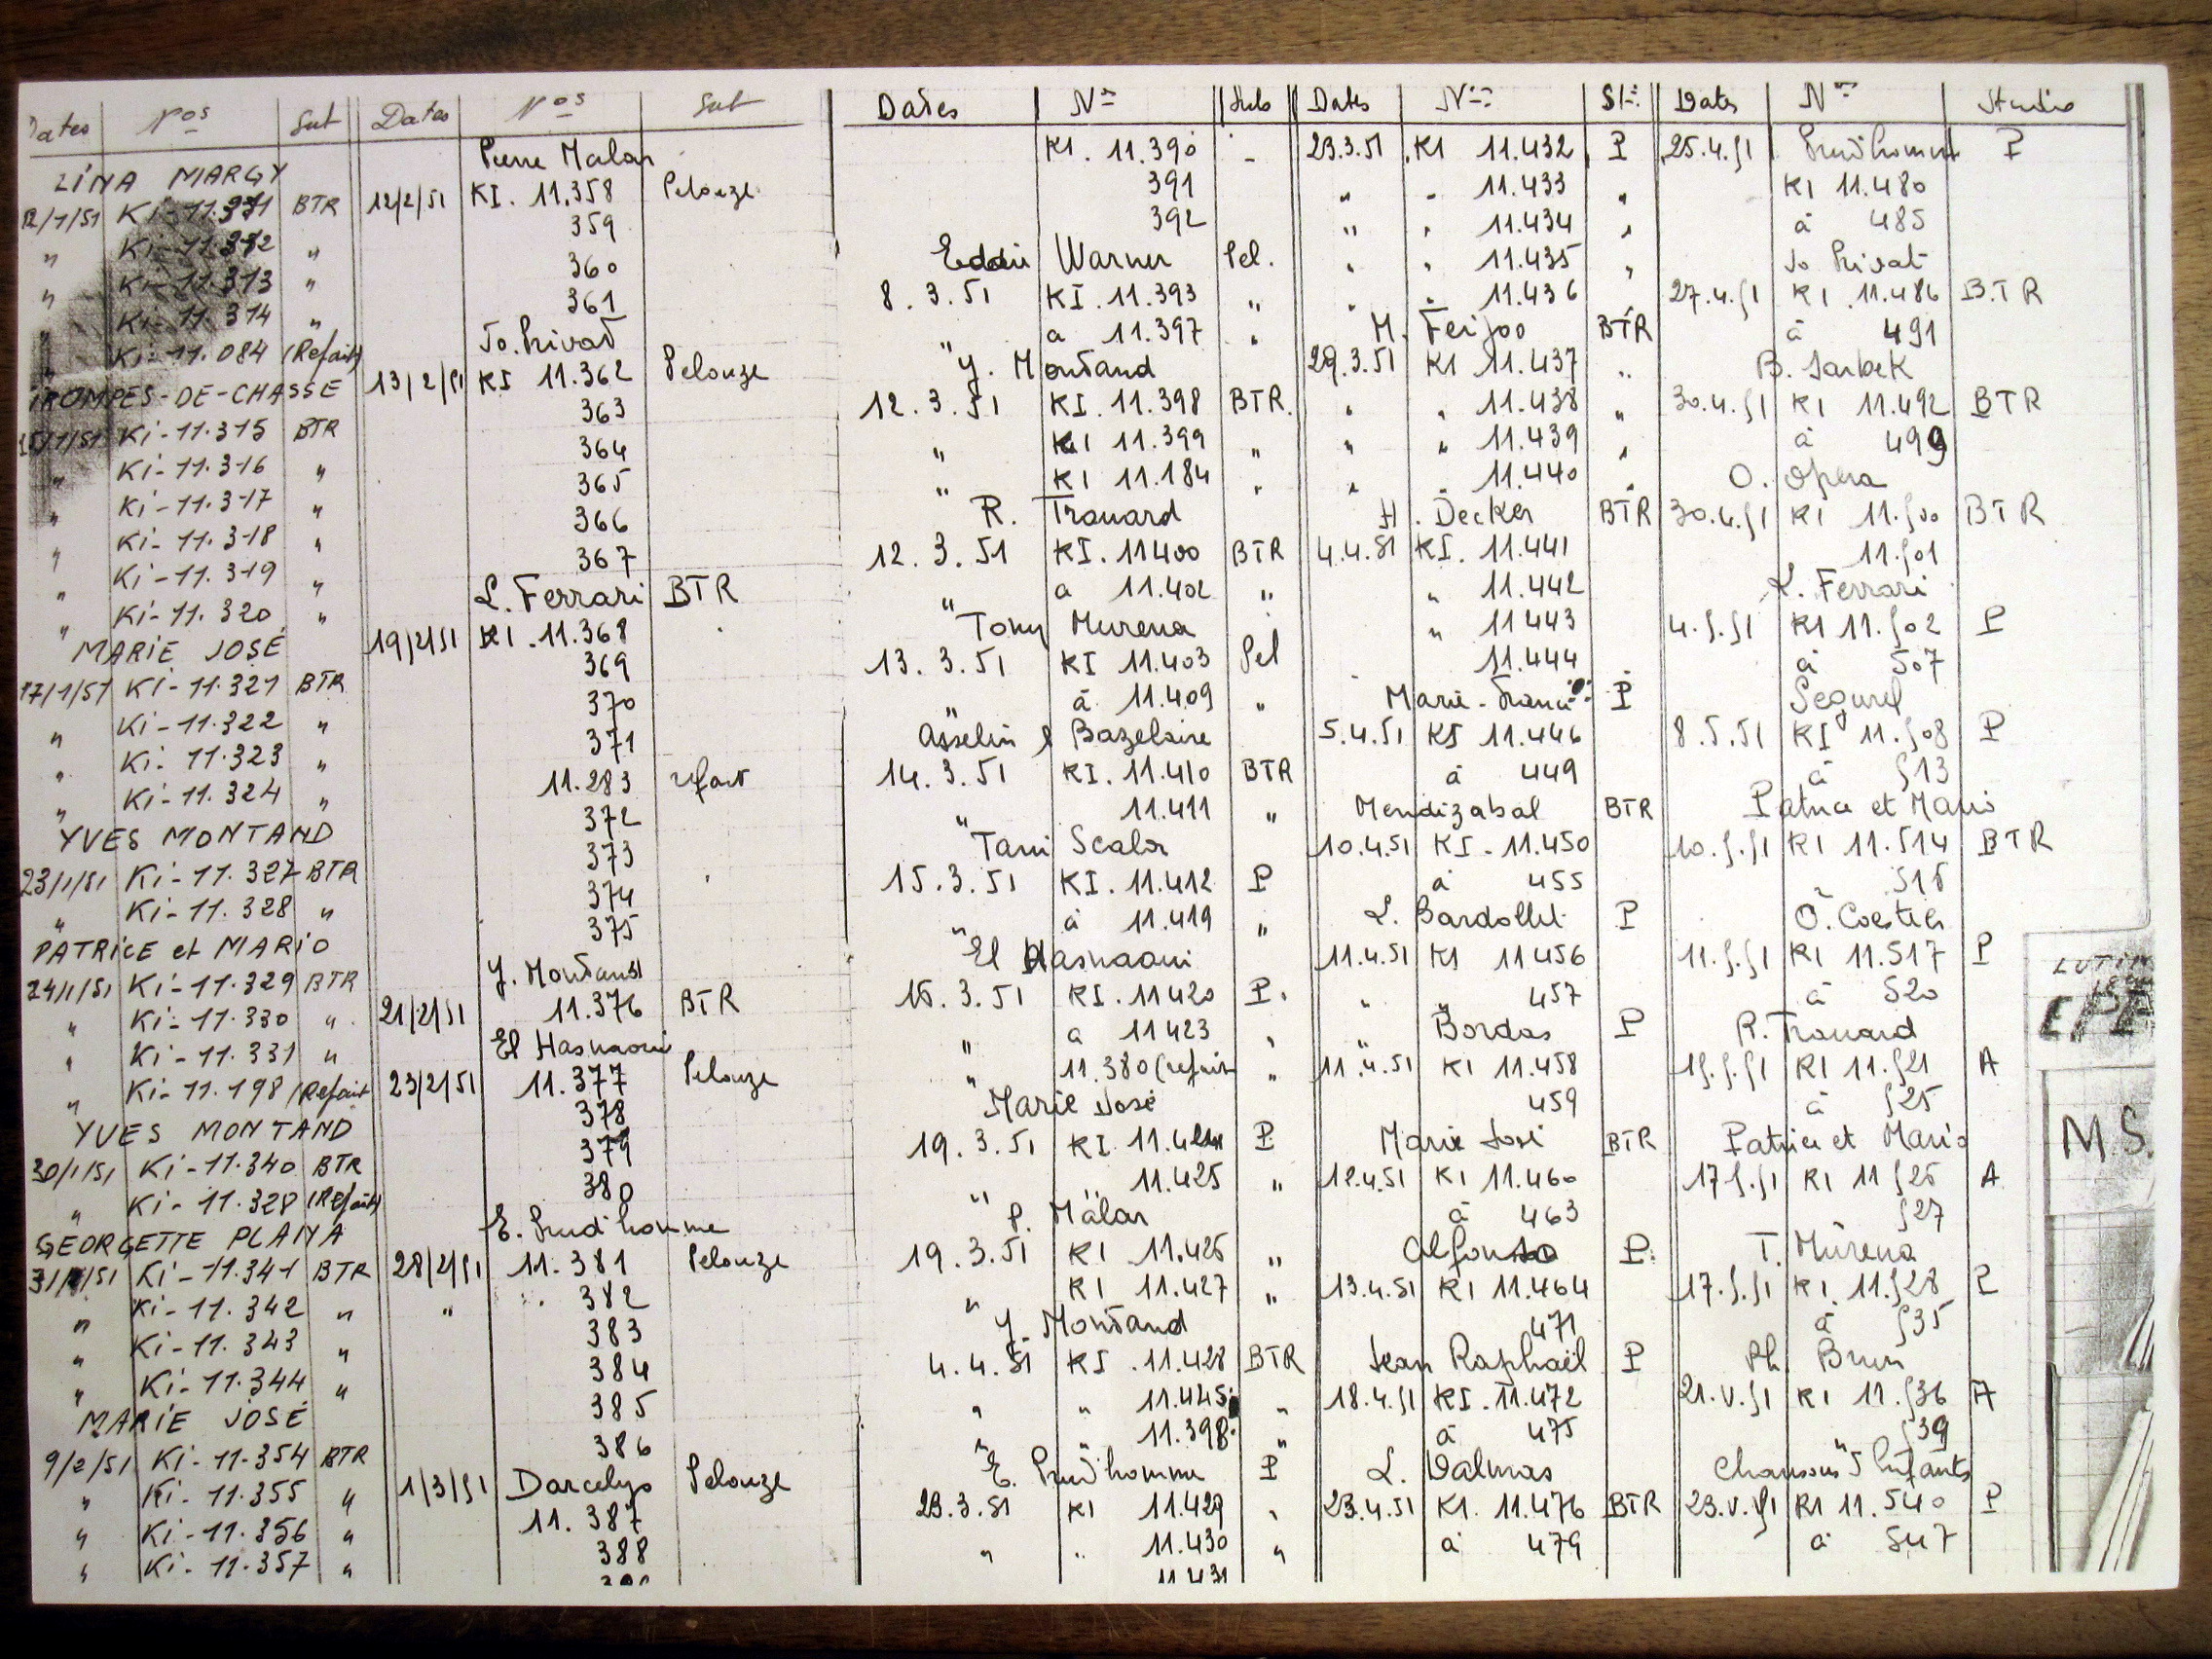 Dates Nos Sut
LINA MARGY
12/1/51 Ki-11.311 BTR
" Ki-11.312 "
" Ki-11.313 "
" Ki-11.314 "
" Ki-11.084 (Refait)
TROMPES-DE-CHASSE
15/1/51 Ki-11.315 BTR
" Ki-11.316 "
" Ki-11.317 "
" Ki-11.318 "
" Ki-11.319 "
" Ki-11.320 "
MARIE JOSÉ
17/1/51 Ki-11.321 BTR
" Ki-11.322 "
" Ki-11.323 "
" Ki-11.324 "
YVES MONTAND
23/1/51 Ki-11.327 BTR
" Ki-11.328 "
PATRICE et MARIO
24/1/51 Ki-11.329 BTR
" Ki-11.330 "
" Ki-11.331 "
" Ki-11.198 (Refait
YVES MONTAND
30/1/51 Ki-11.340 BTR
" Ki-11.328 (Refait)
GEORGETTE PLANA
31/1/51 Ki-11.341 BTR
" Ki-11.342 "
" Ki-11.343 "
" Ki-11.344 "
MARIE JOSÉ
9/2/51 Ki-11-354 BTR
" Ki-11.355 "
" Ki-11.356 "
" Ki-11.357 "
Dates Nos Sut
Pierre Malar
12/2/51 KI. 11.358 Pelouze
359
360
361
Jo. Privat
13/2/51 KI 11.362 Pelouze
363
364
365
366
367
L. Ferrari BTR
19/2/51 KI.11.368
369
370
371
11.283 refait
372
373
374
375
Y. Montand
21/2/51 11.376 BTR
El Hasnaoui
23/2/51 11.377 Pelouze
378
379
380
E. Prud'homme
28/2/51 11.381 Pelouze
" 382
383
384
385
386
1/3/51 Darcelys Pelouze
11.387
388
Dates Nos Sub
KI. 11.390 -
391
392
Eddie Warner Pel.
8.3.51 KI.11.393 "
" a 11.397 "
Y. Montand
12.3.51 KI.11.398 BTR.
" KI 11.399 "
" KI 11.184 "
R. Trouard
12.3.51 KI.11400 BTR
" a 11.402 "
Tony Murena
13.3.51 KI 11.403 Pel
" à 11.409 "
Asselin & Bazelaire
14.3.51 KI.11.410 BTR
" 11.411 "
Tani Scala
15.3.51 KI.11.412 P
" à 11.419 "
El Hasnaoui
16.3.51 KI.11420 P.
" a 11423 "
" 11.380 (refait "
Marie José
19.3.51 KI.11.424 P
" 11.425 "
P. Malar
19.3.51 KI 11.426 "
" KI 11.427 "
Y. Montand
4.4.51 KI.11.428 BTR
" " 11.445 "
" " 11.398 "
E. Prud'homme P
23.3.51 KI 11.429 "
" " 11.430 "
11.431
Dates Nos St:
23.3.51 KI 11.432 P
" " 11.433 "
" " 11.434 "
" " 11.435 "
" " 11.436 "
M. Feijoo BTR
29.3.51 KI 11.437 "
" " 11.438 "
" " 11.439 "
" " 11.440 "
H. Decker BTR
4.4.51 KI. 11.441
" 11.442
" 11443
11.444
Marie-France P
5.4.51 KI 11.446
à 449
Mendizabal BTR
10.4.51 KI-11.450
à 455
L. Bardollet P
11.4.51 KI 11456
" " 457
" Bordas P
11.4.51 KI 11.458
459
Marie José BTR
12.4.51 KI 11.460
à 463
Alfonso P.
13.4.51 KI 11.464
471
Jean Raphaël P
18.4.51 KI.11.472
à 475
L. Dalmas
23.4.51 KI.11.476 BTR
à 479
Dates Nos Studio
25.4.51 Prud'homme P
KI 11.480
à 485
Jo Privat
27.4.51 KI.11.486 B.T R
à 491
B. Sarbek
30.4.51 KI 11.492 BTR
à 499
O. Opera
30.4.51 KI 11.500 BTR
11.501
L. Ferrari
4.5.51 KI 11.502 P
à 507
Segurel
8.5.51 KI 11.508 P
à 513
Patrice et Mario
10.5.51 KI 11.514 BTR
516
O. Coestier
11.5.51 KI 11.517 P
à 520
R. Trouard
15.5.51 KI 11.521 A
à 525
Patrice et Mario
17.5.51 KI 11526 A
527
T. Murena
17.5.51 KI.11.528 P
à 535
Ph. Brun
21.V.51 KI 11.536 A
539
Chansons d'Enfants
23.V.51 KI 11.540 P
à 547
M.S.